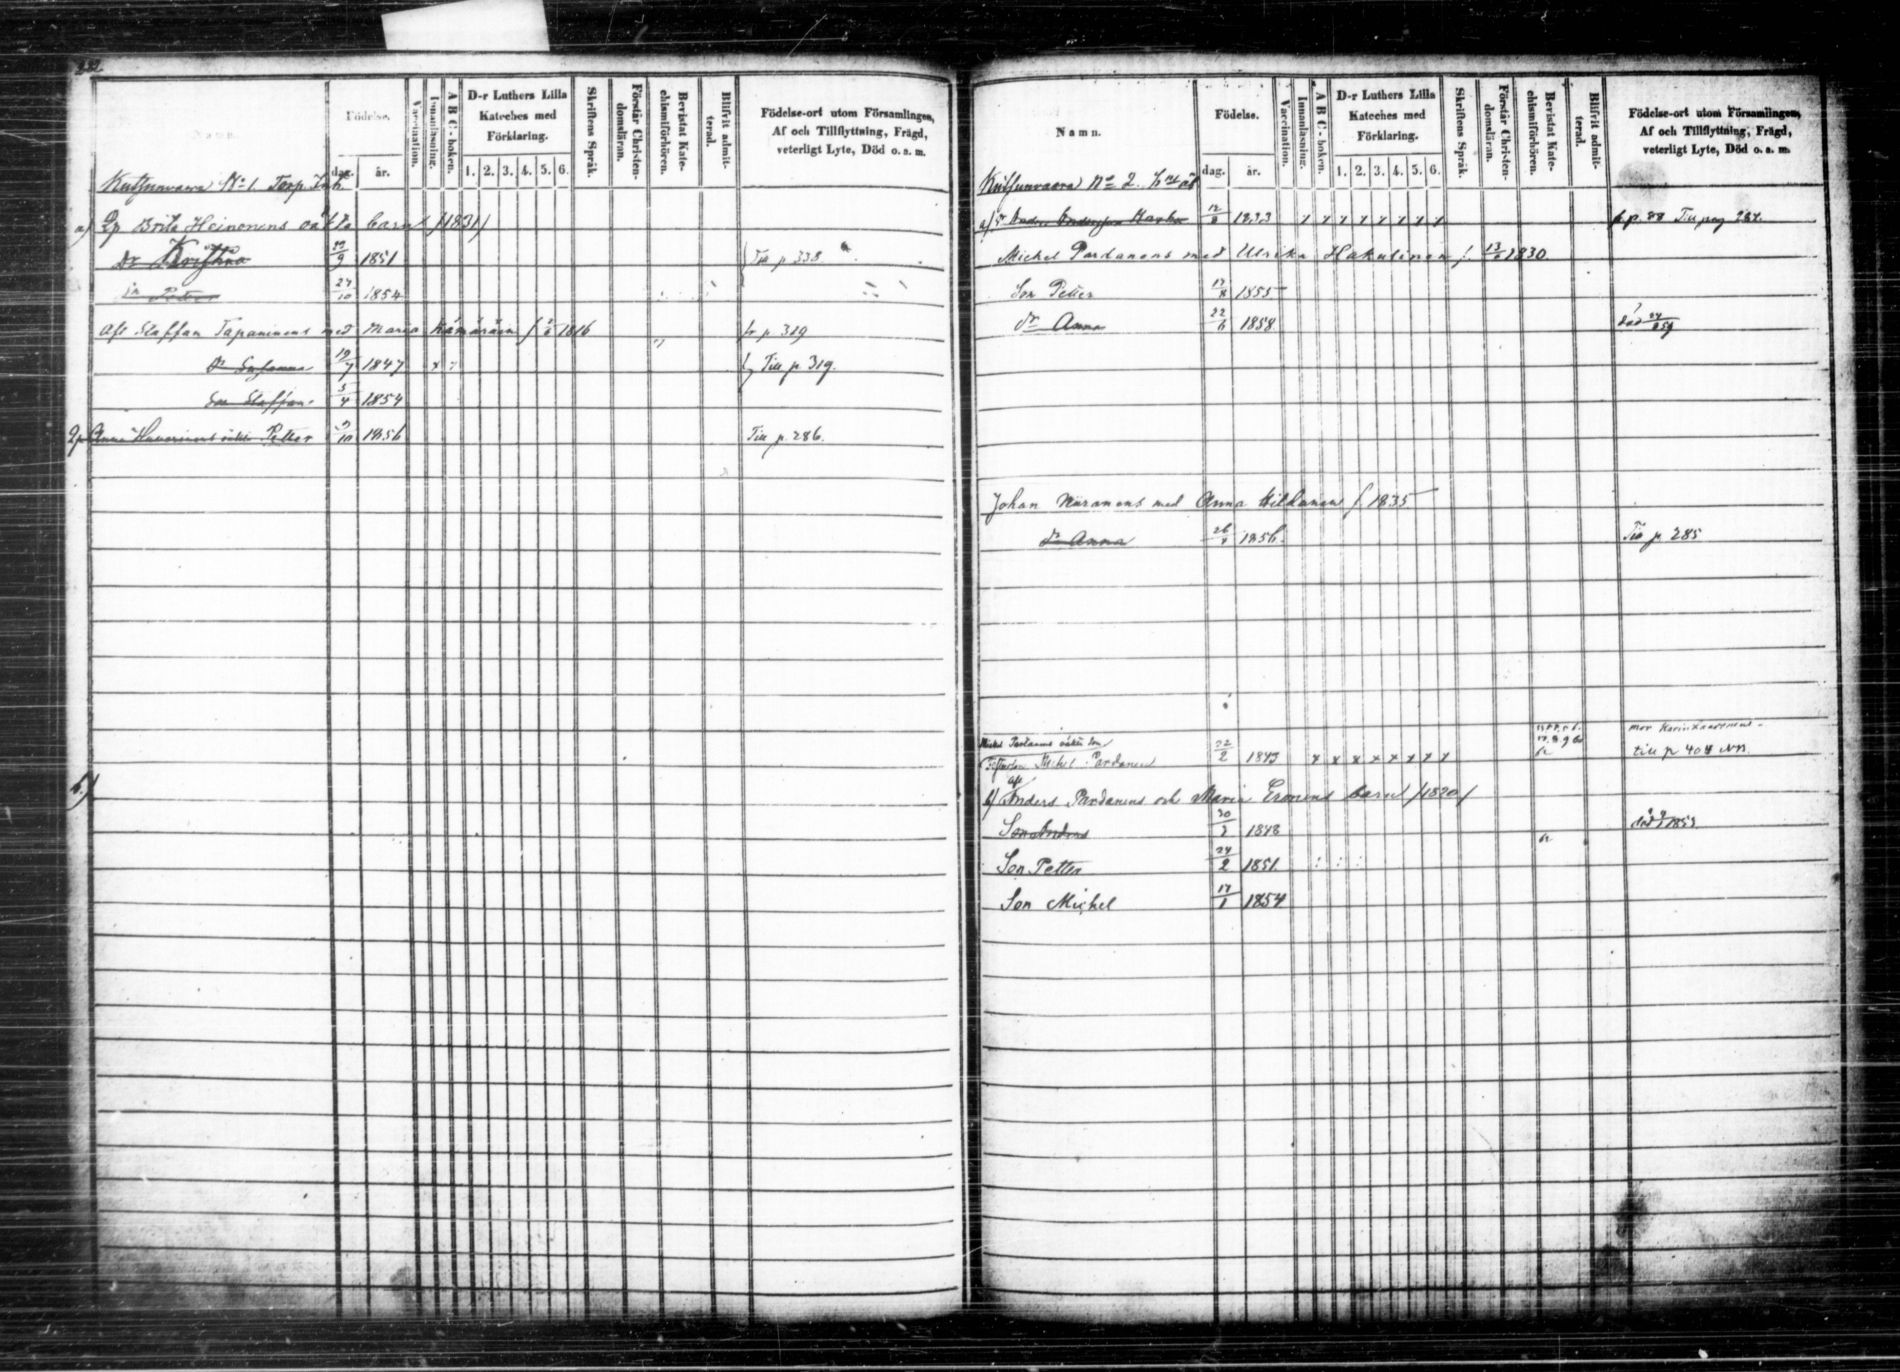 332
Namn.
Födelse.
dag.
år.
Vaccination.
Innanläsning.
A B C-boken.
D-r Luthers Lilla
Kateches med
Förklaring.
1. 2. 3. 4. 5. 6.
Skriftens Språk.
Förstår Christen-
domsläran.
Bevistat Kate-
chismiförhören.
Blifvit admit-
terad.
Födelse-ort utom Församlingen,
Af och Tillflyttning, Frägd,
veterligt Lyte, Död o. s. m.
Kutsunvaara No 1. Torp. Inh.
a) Qp Brita Heinonens oäkta barn (1831)
Dr Kristina 9 1851 Till p. 338
Sn Petter 27/10 1854
afl Staffan Tapaninens med Maria Hämäräin f. 1816 fr p. 319
Dr Susanna 19/7 1847 x Till p 319.
Son Staffan 5/4 1854
Qp Anna oäkta Petter 10 1856 Till p. 286.
b.)
Namn.
Födelse.
dag.
år.
Vaccination.
Innanläsning.
A B C-boken.
D-r Luthers Lilla
Kateches med
Förklaring.
1. 2. 3. 4. 5. 6.
Skriftens Språk.
Förstår Christen-
domsläran.
Bevistat Kate-
chismiförhören.
Blifvit admit-
terad.
Födelse-ort utom Församlingen,
Af och Tillflyttning, Frägd,
veterligt Lyte, Död o. s. m.
Kutsunvaara No 2.
a) Andersson 12/8 1833 x x x x x x x x p. 88 Till pag 284.
Michel Pardanens med Ulrika Hakulinen f. 13 1830
Son Petter 17/8 1855
dr Anna 22/6 1858 död 24/859
Johan Näränens med Anna Hildanen f. 1835
dr Anna 26 1856 Till p 285
Michel Pardanens oäkta son
Michel Pardanen 22/2 1843 x x x x x x x x till p 404
mor Karin
afl
b) Anders Pardanens och Maria Eronens barn (1820)
Son Anders 30 1848 död 1853
Son Petter 24/2 1851
Son Michel 17/1 1854